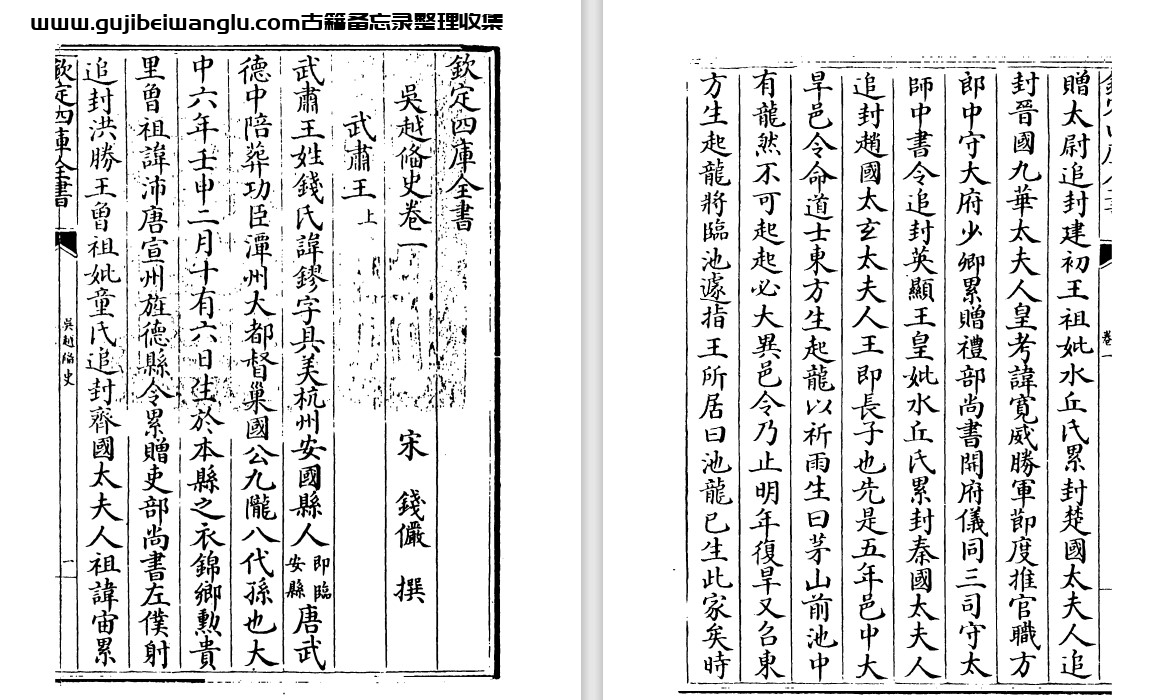 www.gujibeiwanglu.com古籍备忘录整理收集
欽定四庫全書
吳越備史卷一
宋 錢儼 撰
武肅王上
武肅王姓錢氏諱鏐字具美杭州安國縣人即臨安縣唐武
德中陪葬功臣潭州大都督巢國公九隴八代孫也大
中六年壬申二月十有六日生於本縣之衣錦鄉勲貴
里曾祖諱沛唐宣州旌德縣令累贈吏部尚書左僕射
追封洪勝王曾祖妣童氏追封齊國太夫人祖諱宙累
欽定四庫全書
吳越備史
一
卷一
贈太尉追封建初王祖妣水丘氏累封楚國太夫人追
封晉國九華太夫人皇考諱寛威勝軍節度推官職方
郎中守大府少卿累贈禮部尚書開府儀同三司守太
師中書令追封英顯王皇妣水丘氏累封秦國太夫人
追封趙國太玄太夫人王即長子也先是五年邑中大
旱邑令命道士東方生起龍以祈雨生曰茅山前池中
有龍然不可起起必大異邑令乃止明年復旱又召東
方生起龍將臨池遽指王所居曰池龍已生此家矣時